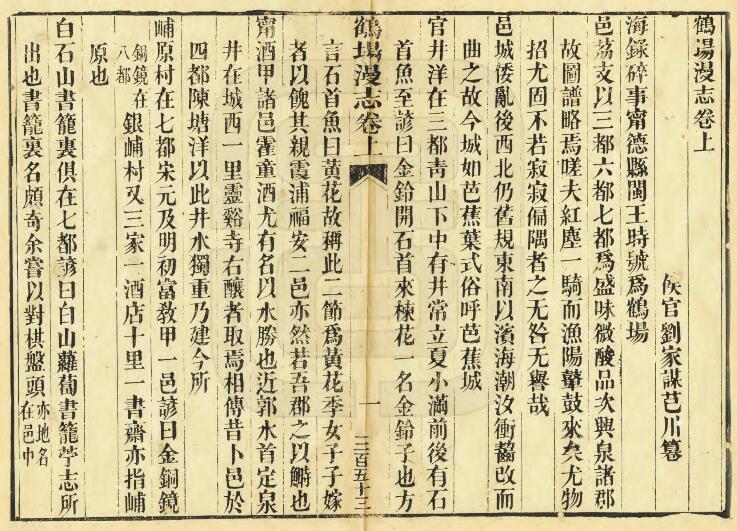 鶴場漫志卷上
侯官劉家謀芑川纂
海錄碎事甯德縣閩王時號爲鶴場
邑荔支以三都六都七都爲盛味微酸品次興泉諸郡
故圖譜略焉嗟夫紅塵一騎而漁陽鼙鼓來矣尤物
招尤固不若寂寂偏隅者之无咎无譽哉
邑城倭亂後西北仍舊規東南以濱海潮汐衝齧改而
曲之故今城如芭蕉葉式俗呼芭蕉城
官井洋在三都靑山下中有井常立夏小滿前後有石
首魚至諺曰金鈴開石首來楝花一名金鈴子也方
鶴場漫志卷上
一
三百五十三
言石首魚曰黃花故稱此二節爲黃花季女子子嫁
者以餽其親霞浦福安二邑亦然若吾郡之以鰣也
甯酒甲諸邑霍童酒尤有名以水勝也近郭水首定泉
井在城西一里靈谿寺右釀者取焉相傳昔卜邑於
四都陳塘洋以此井水獨重乃建今所
㟊原村在七都宋元及明初富敎甲一邑諺曰金銅鏡
銅鏡在八都銀㟊村又三家一酒店十里一書齋亦指㟊
原也
白石山書籠裏俱在七都諺曰白山蘿蔔書籠苧志所
出也書籠裏名頗奇余嘗以對棋盤頭亦地名在邑中